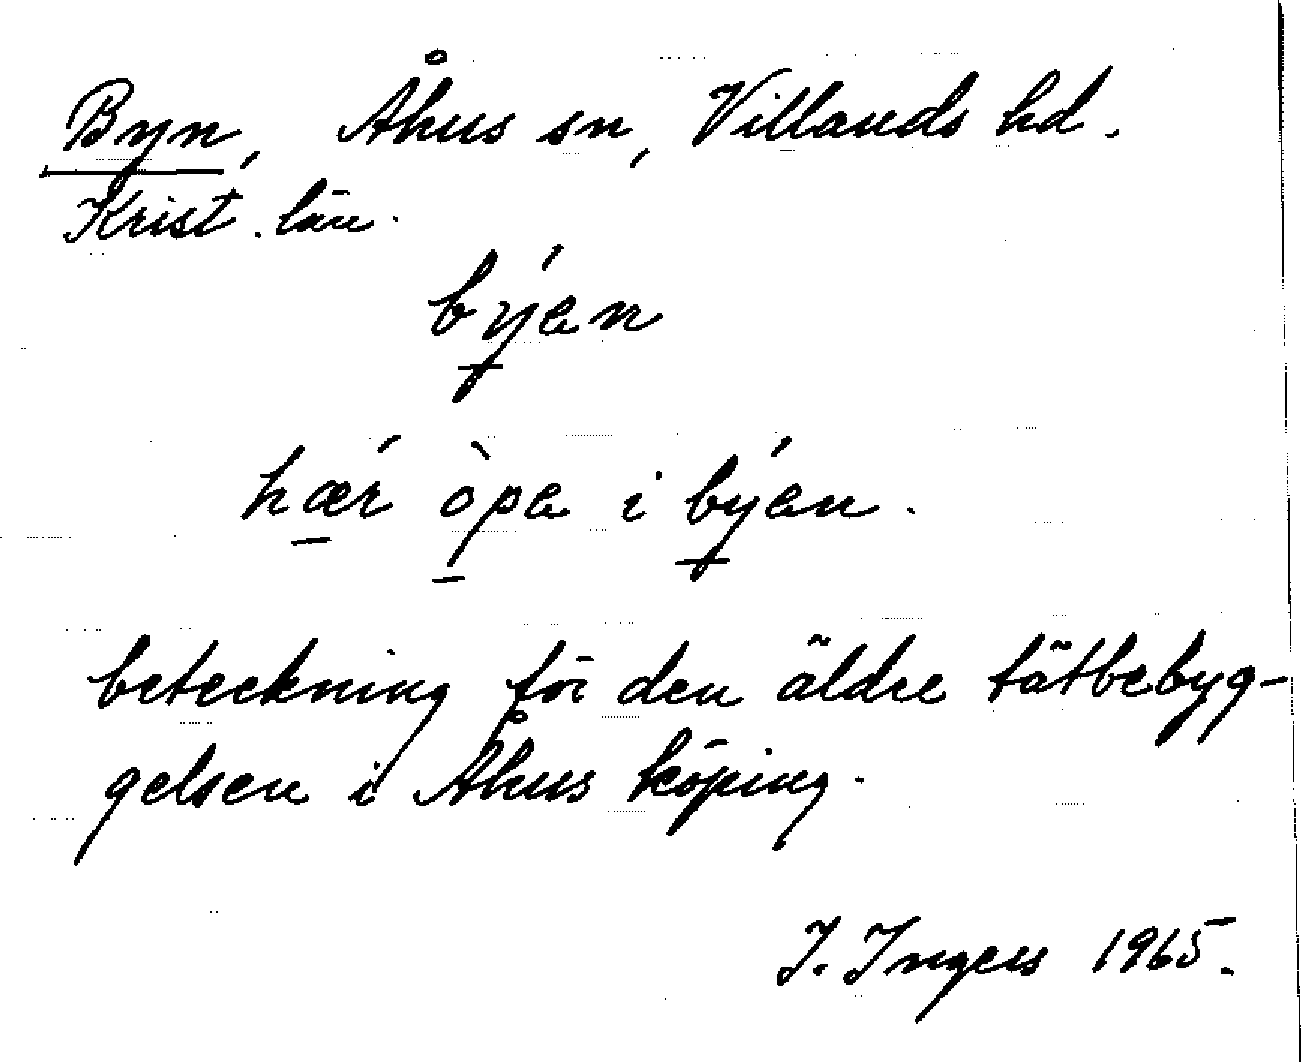 Byn, Åhus sn, Villands hd.
Krist. län.
býen
hæŕ òpe i býen.
beteckning för den äldre tätbebyg-
gelsen i Åhus köping.
I. Ingers 1965.